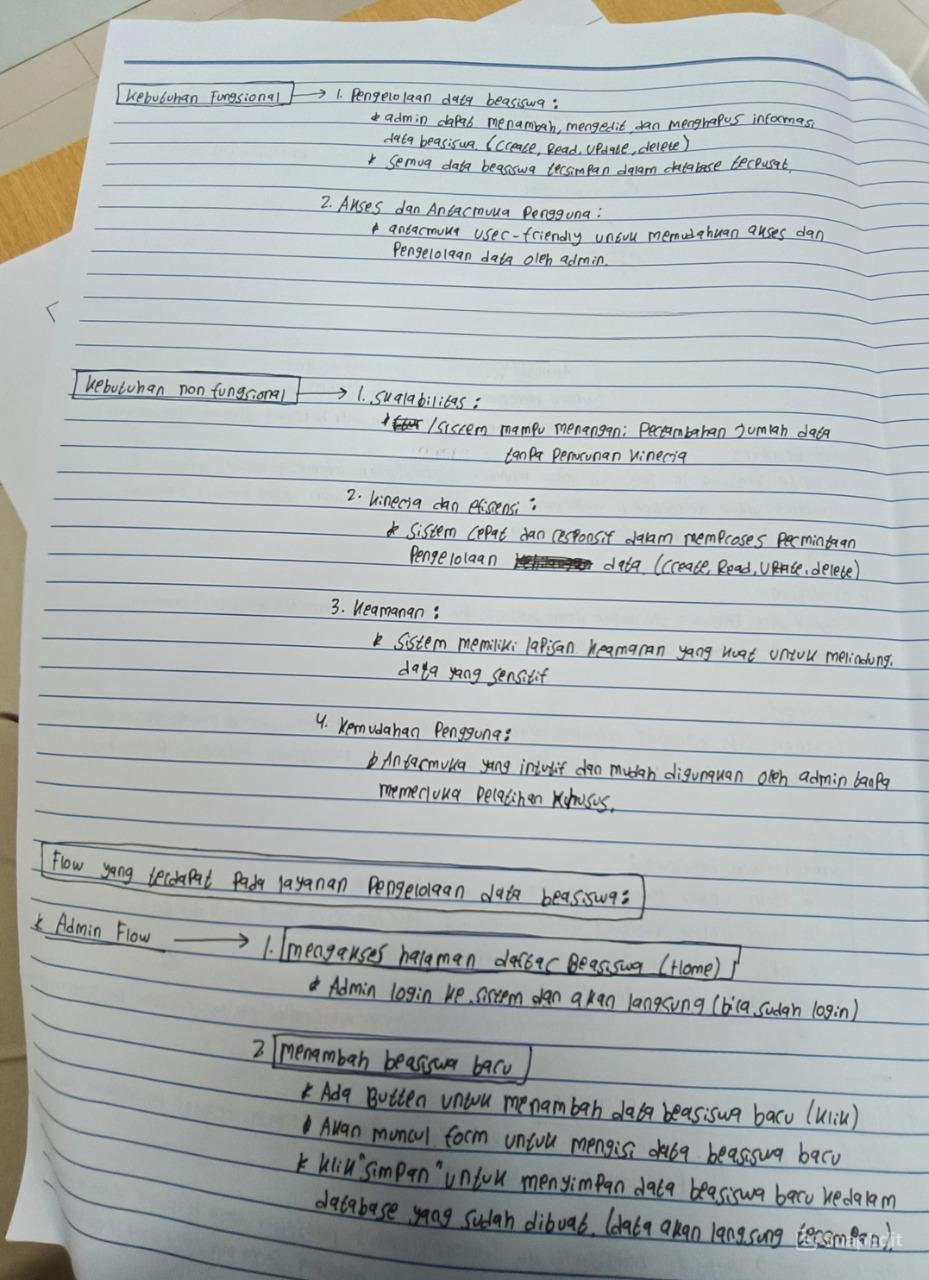 Kebutuhan Fungsional → 1. Pengelolaan data beasiswa :
* admin dapat menambah, mengedit, dan menghapus informasi
data beasiswa (Create, Read, Update, delete)
* Semua data beasiswa tersimpan dalam database terpusat.
2. Akses dan Antarmuka Pengguna :
* antarmuka user-friendly untuk memudahkan akses dan
Pengelolaan data oleh admin.
Kebutuhan non fungsional → 1. Skalabilitas :
* /sistem mampu menangani Pertambahan Jumlah data
tanpa Penurunan kinerja
2. kinerja dan efisiensi :
* Sistem cepat dan responsif dalam memproses Permintaan
Pengelolaan data (Create, Read, Update, delete)
3. Keamanan :
* Sistem memiliki lapisan keamanan yang kuat untuk melindungi
data yang sensitif
4. Kemudahan Pengguna :
* Antarmuka yang intutif dan mudah digunakan oleh admin tanpa
memerluka Pelatihan Khusus.
Flow yang terdapat pada layanan Pengelolaan data beasiswa :
* Admin Flow → 1. mengakses halaman daftar Beasiswa (Home)
* Admin login ke sistem dan akan langsung (bila sudah login)
2 menambah beasiswa baru
* Ada Butten untuk menambah data beasiswa baru (klik)
* Akan muncul form untuk mengisi data beasiswa baru
* klik "simpan" untuk menyimpan data beasiswa baru kedalam
database yang sudah dibuat. (data akan langsung tersimpan).